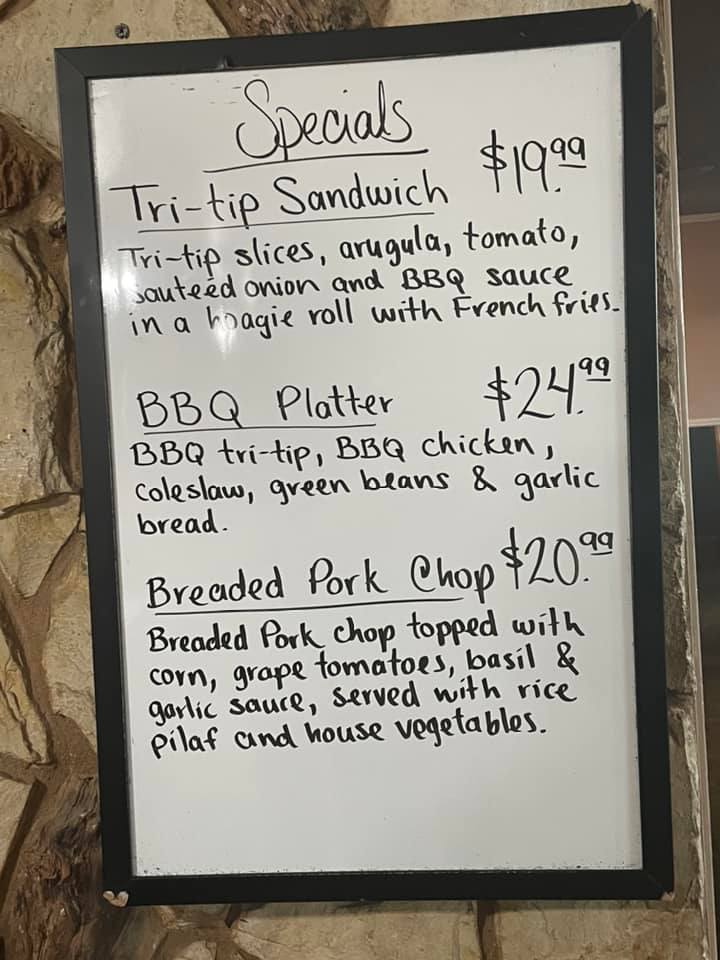 Specials
Tri-tip Sandwich $19.99
Tri-tip slices, arugula, tomato,
sauteéd onion and BBQ sauce
in a hoagie roll with French fries.
BBQ Platter $24.99
BBQ tri-tip, BBQ chicken,
Coleslaw, green beans & garlic
bread.
Breaded Pork Chop $20.99
Breaded Pork chop topped with
corn, grape tomatoes, basil &
garlic sauce, served with rice
pilaf and house vegetables.